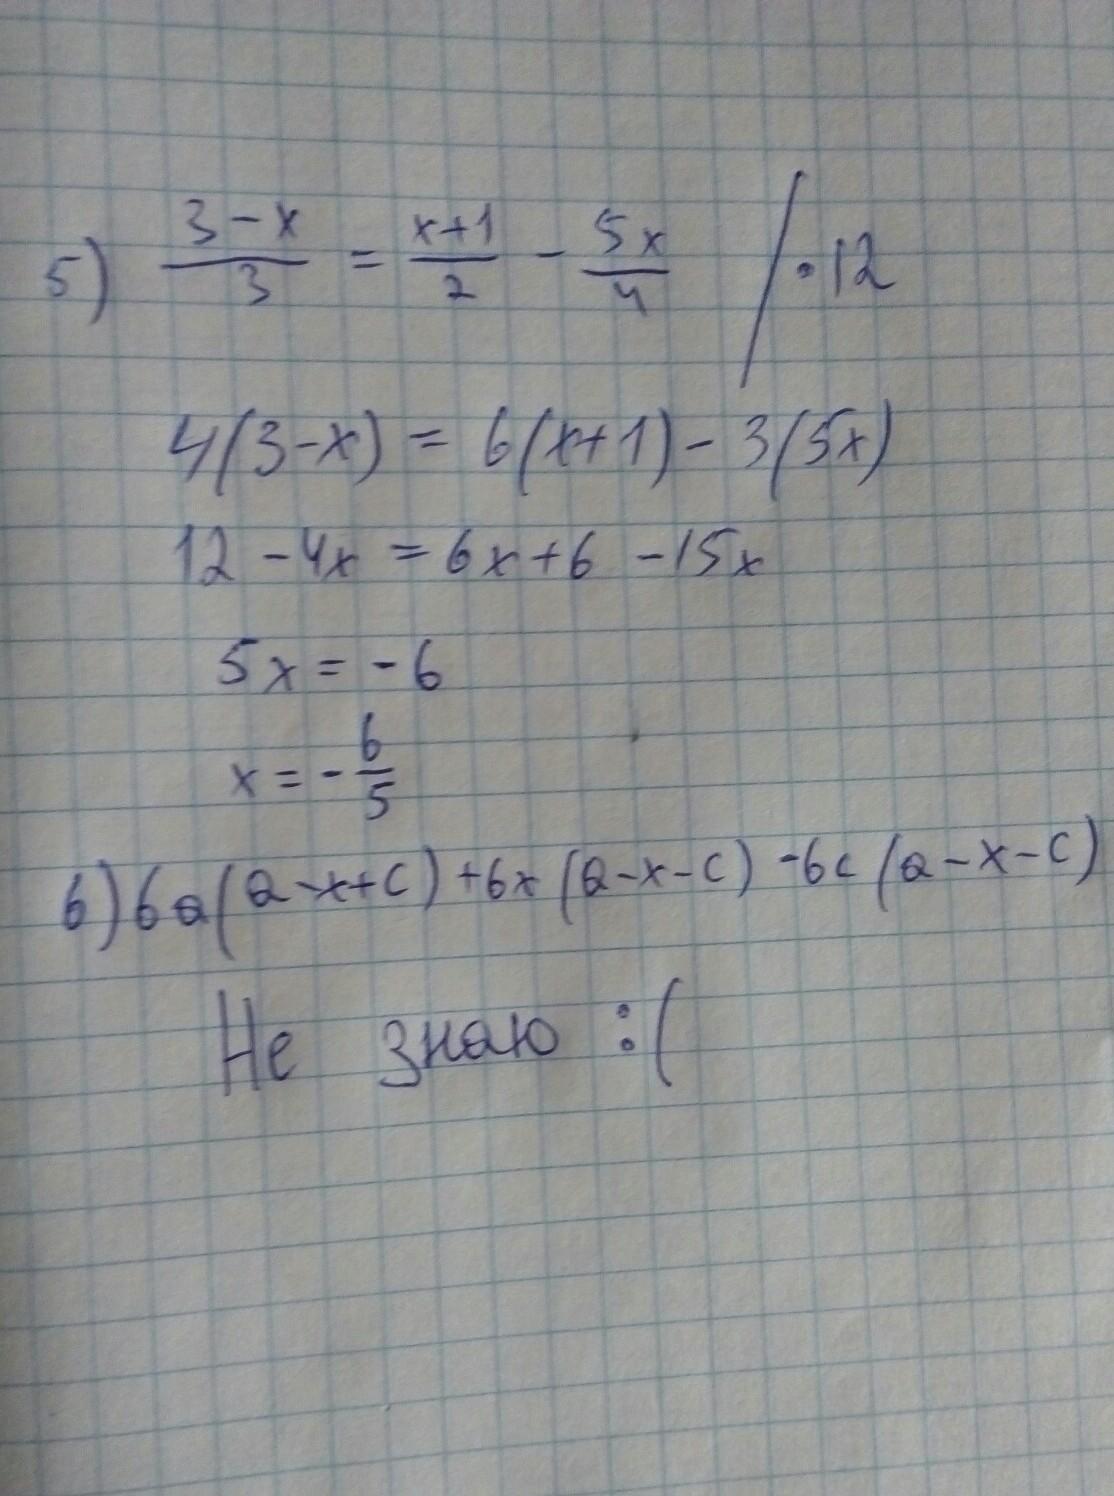 5) (3-x)/3 = (x+1)/2 - 5x/4 /·12
4(3-x) = 6(x+1) - 3(5x)
12 - 4x = 6x + 6 - 15x
5x = -6
x = - 6/5
6) 6a(a-x+c) +6x(a-x-c) -6c(a-x-c)
Не знаю :(